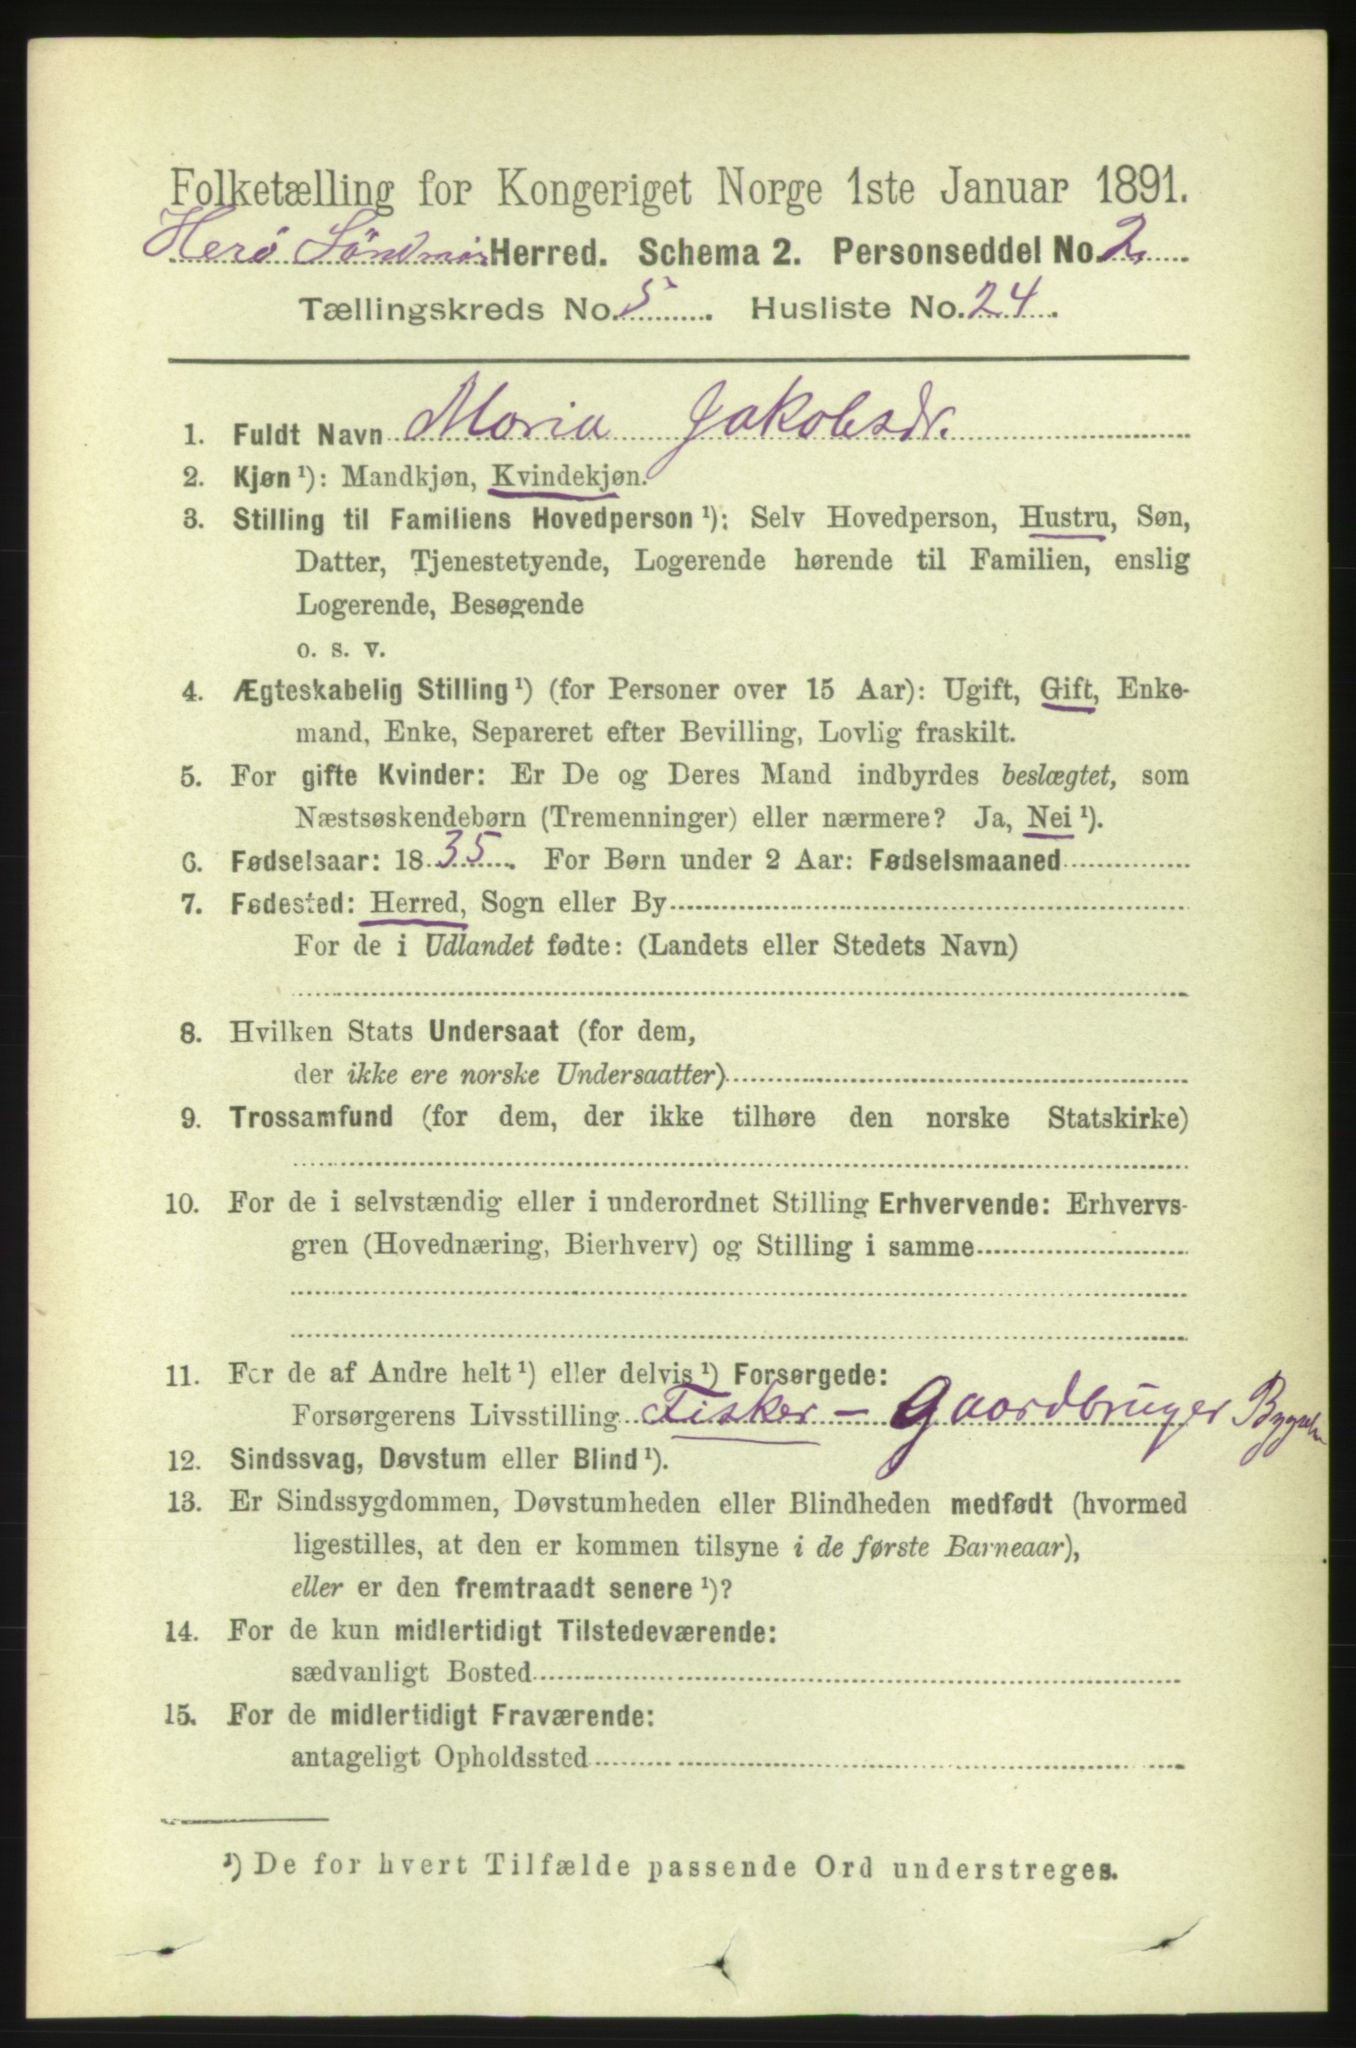 Folketælling for Kongeriget Norge 1ste Januar 1891.
Herø Söndmör Herred. Schema 2. Personseddel No. 2
Tællingskreds No. 5. Husliste No. 24.
1. Fuldt Navn Maria Jakobsdr.
2. Kjøn ¹): Mandkjøn, Kvindekjøn.
3. Stilling til Familiens Hovedperson ¹): Selv Hovedperson, Hustru, Søn,
Datter, Tjenestetyende, Logerende hørende til Familien, enslig
Logerende, Besøgende
o. s. v.
4. Ægteskabelig Stilling ¹) (for Personer over 15 Aar): Ugift, Gift, Enke-
mand, Enke, Separeret efter Bevilling, Lovlig fraskilt.
5. For gifte Kvinder: Er De og Deres Mand indbyrdes beslægtet, som
Næstsøskendebørn (Tremenninger) eller nærmere? Ja, Nei ¹).
6. Fødselsaar: 1835. For Børn under 2 Aar: Fødselsmaaned
7. Fødested: Herred, Sogn eller By
For de i Udlandet fødte: (Landets eller Stedets Navn)
8. Hvilken Stats Undersaat (for dem,
der ikke ere norske Undersaatter)
9. Trossamfund (for dem, der ikke tilhøre den norske Statskirke)
10. For de i selvstændig eller i underordnet Stilling Erhvervende: Erhvervs-
gren (Hovednæring, Bierhverv) og Stilling i samme
11. For de af Andre helt ¹) eller delvis ¹) Forsørgede:
Forsørgerens Livsstilling Fisker - Gaardbruger
12. Sindssvag, Døvstum eller Blind ¹).
13. Er Sindssygdommen, Døvstumheden eller Blindheden medfødt (hvormed
ligestilles, at den er kommen tilsyne i de første Barneaar),
eller er den fremtraadt senere ¹)?
14. For de kun midlertidigt Tilstedeværende:
sædvanligt Bosted
15. For de midlertidigt Fraværende:
antageligt Opholdssted
¹) De for hvert Tilfælde passende Ord understreges.